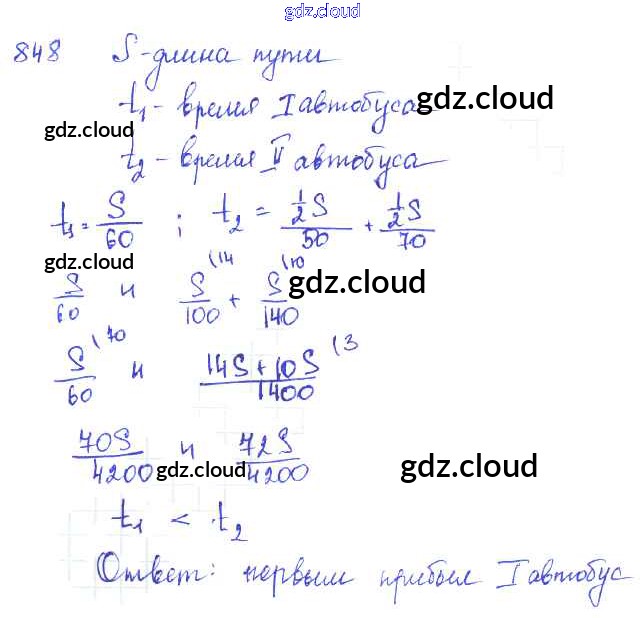 gdz.cloud
848 S-длина пути
t₁ - время I автобуса
gdz.cloud
gdz.cloud
t₂ - время II автобуса
t₁ = S/60 ; t₂ = ½S/50 + ½S/70
gdz.cloud
gdz.cloud
S/60 и S/100 (14 + S/140 (10
S/60 (70 и 14S+10S/1400 (3
70S/4200 и 72S/4200
gdz.cloud
gdz.cloud
t₁ < t₂
Ответ: первым прибыл I автобус